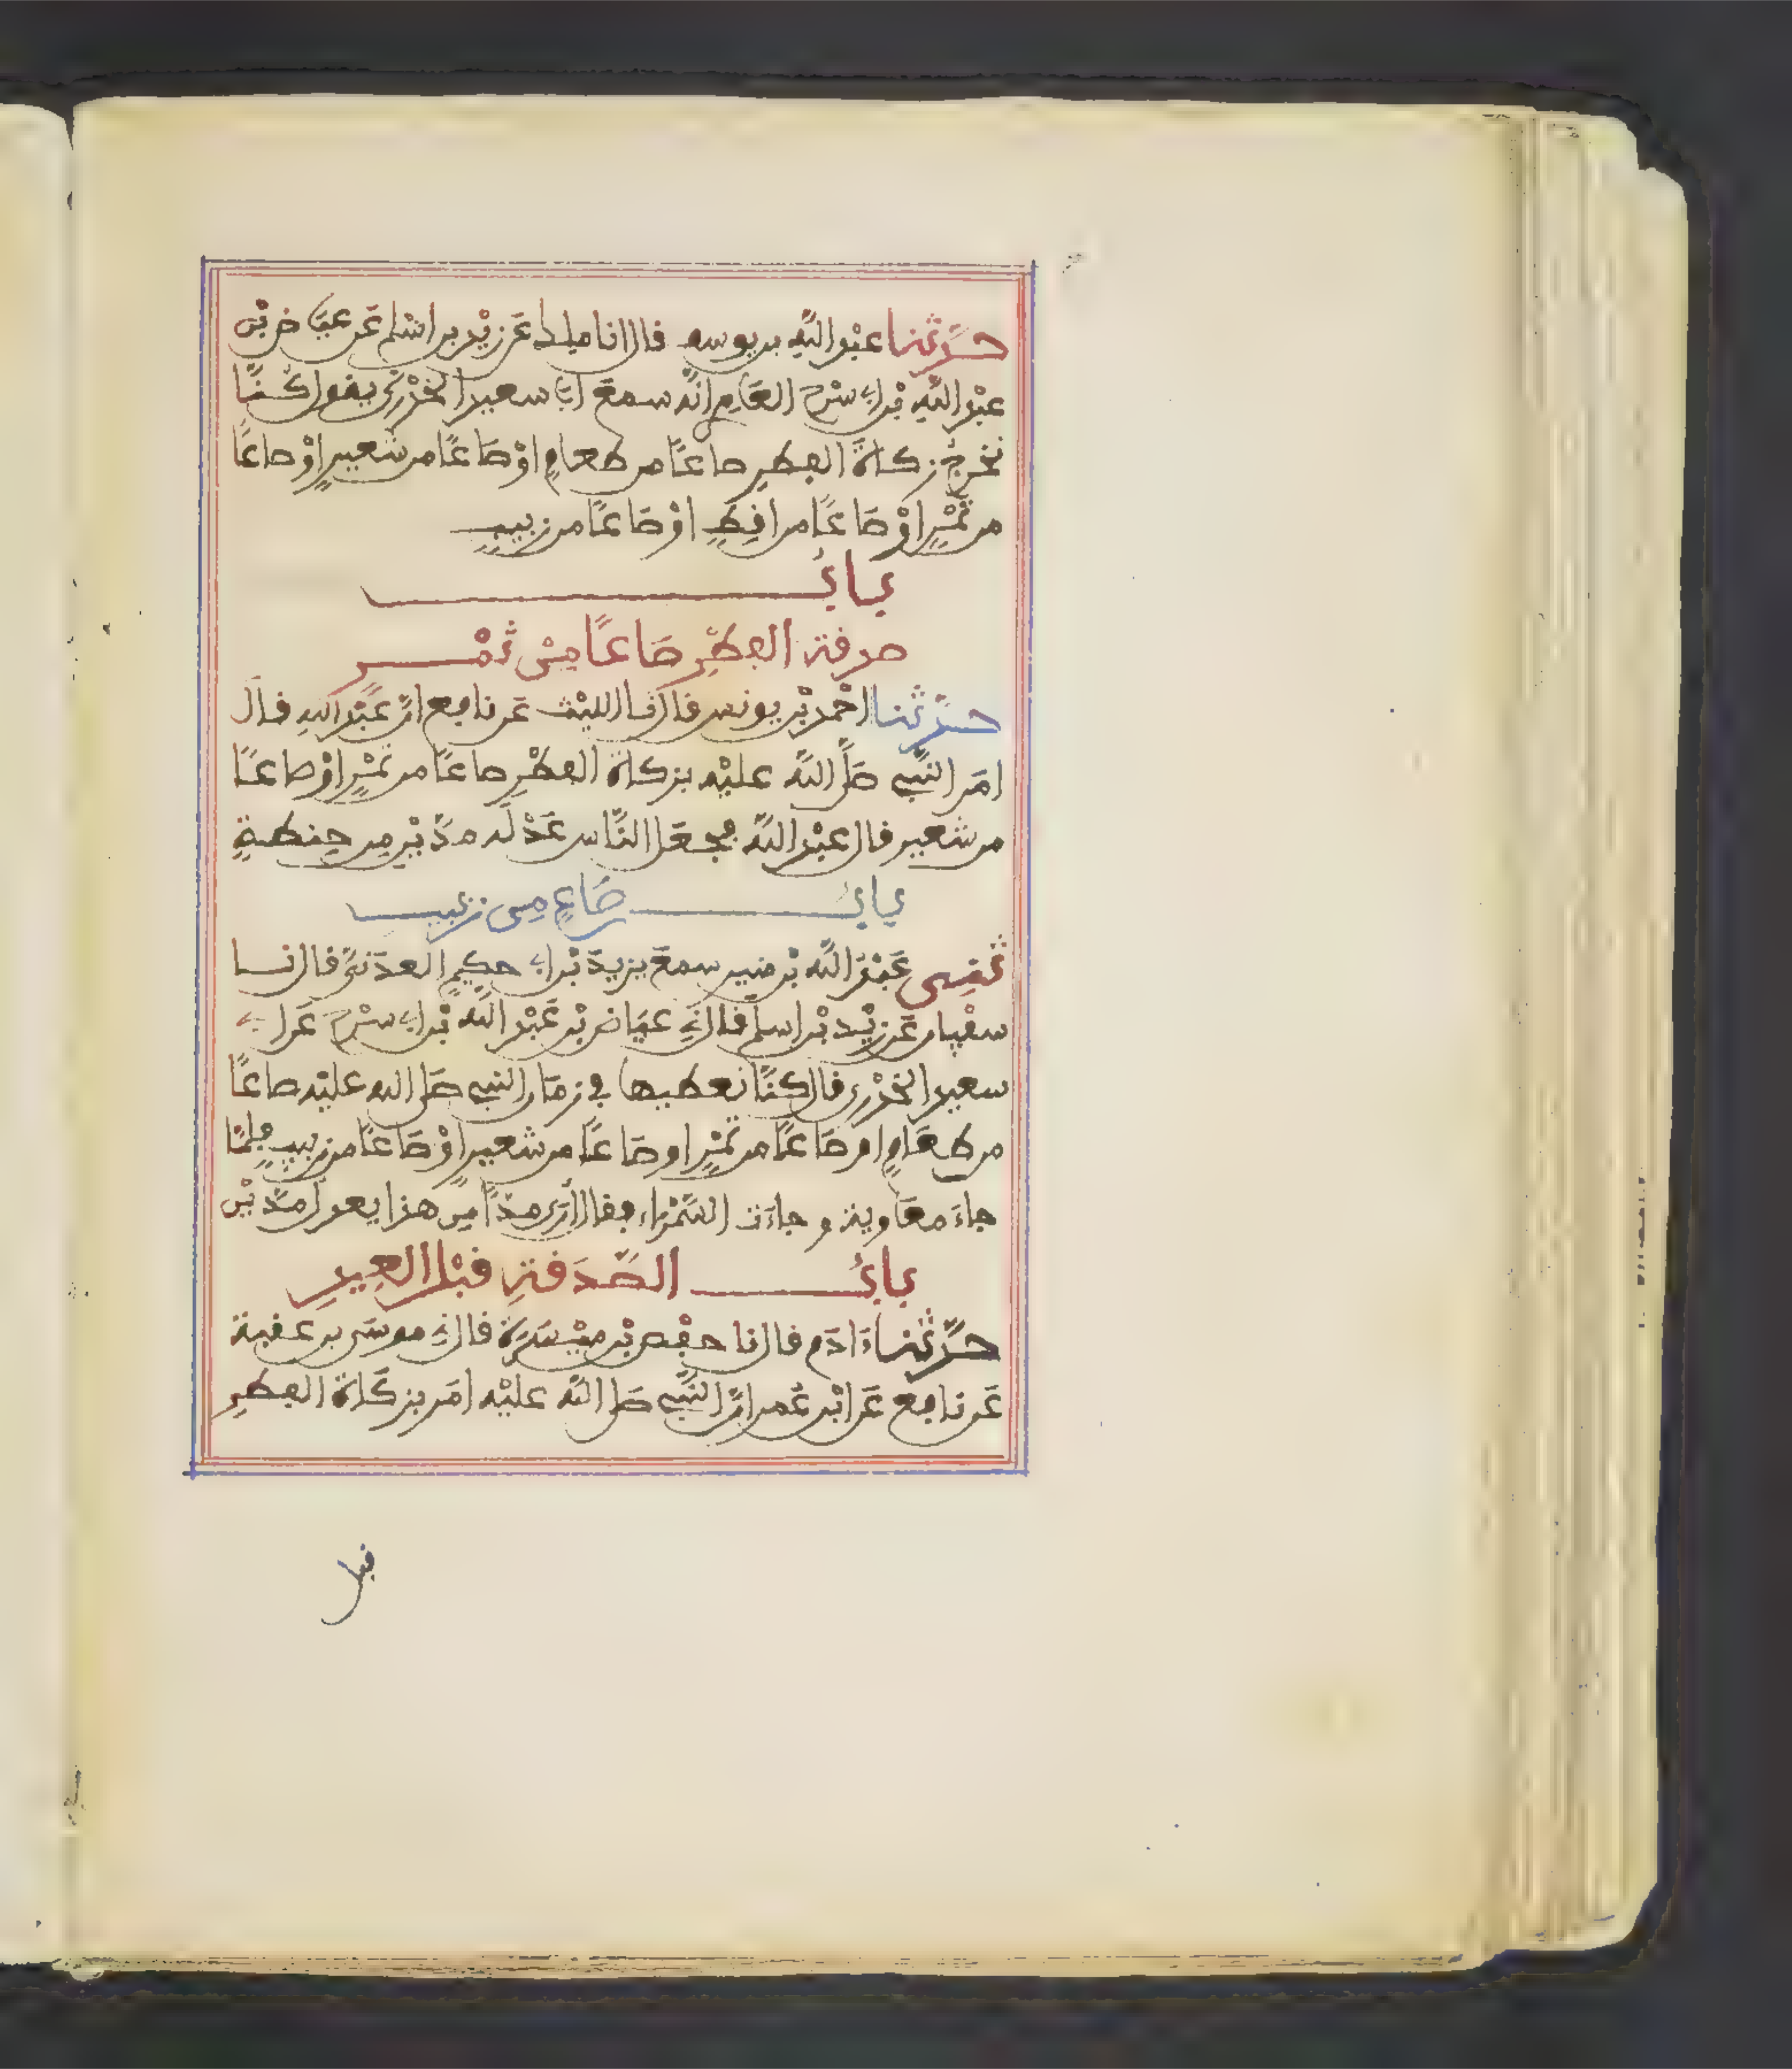 حدّثنا عبد الله بن يوسف قال انا ملك عن زيد بن اسلم عن عياض بن
عبد الله بن ابي سرح العامري انه سمع ابا سعيد الخدري يقول كنّا
نخرج زكاة الفطر صاعًا من طعامٍ اوْ صَاعًا من شعيرٍ اوْ صاعًا
من تمْرٍ اوْ صَاعًا من اقِطٍ اوْ صَاعًا من زبيبٍ
بابُ
صدقة الفطْرِ صَاعًا مِن تمْر
حدّثنا احْمد بْن يونس قال نا الليْث عن نافع انّ عبْد الله قال
امَر النّبي صَلّى اللّه عليْه بزكاة الفطْرِ صاعًا من تمْرٍ اوْ صاعًا
من شعير قال عبْد اللّه فجعَل النّاس عَدْلَه مدّيْن مِن حِنطةٍ
بابُ صَاعٍ مِن زبيب
ثني عبْد اللّه بْن منير سمعَ يزيدَ بْن ابي حكِيمٍ العدَني قال نا
سفْيان عن زيْد بْن اسلم قال ني عيَاض بْن عَبْد اللّه بْن ابي سرْح عَن ابي
سعيد الخدْري قال كنّا نعطيها في زمَان النبي صَلى الله عليْه صاعًا
من طعَامٍ او صَاعًا من تمْرٍ او صَاعًا من شعيرٍ اوْ صَاعًا من زبيبٍ فلمّا
جاءَ معَاوية وجاءَت السّمْراء فقال أرى مدًّا مِن هذا يعدل مدّيْن
بابُ الصَّدَقةِ قبْل العِيدِ
حدّثنا ءادَم قال نا حفْص بْن ميْسَرَة قال ني موسَى بن عقبة
عَن نافع عَن ابْن عُمر انّ النّبي صَلى اللّه عليْه امَر بزكَاة الفطرِ
قبل